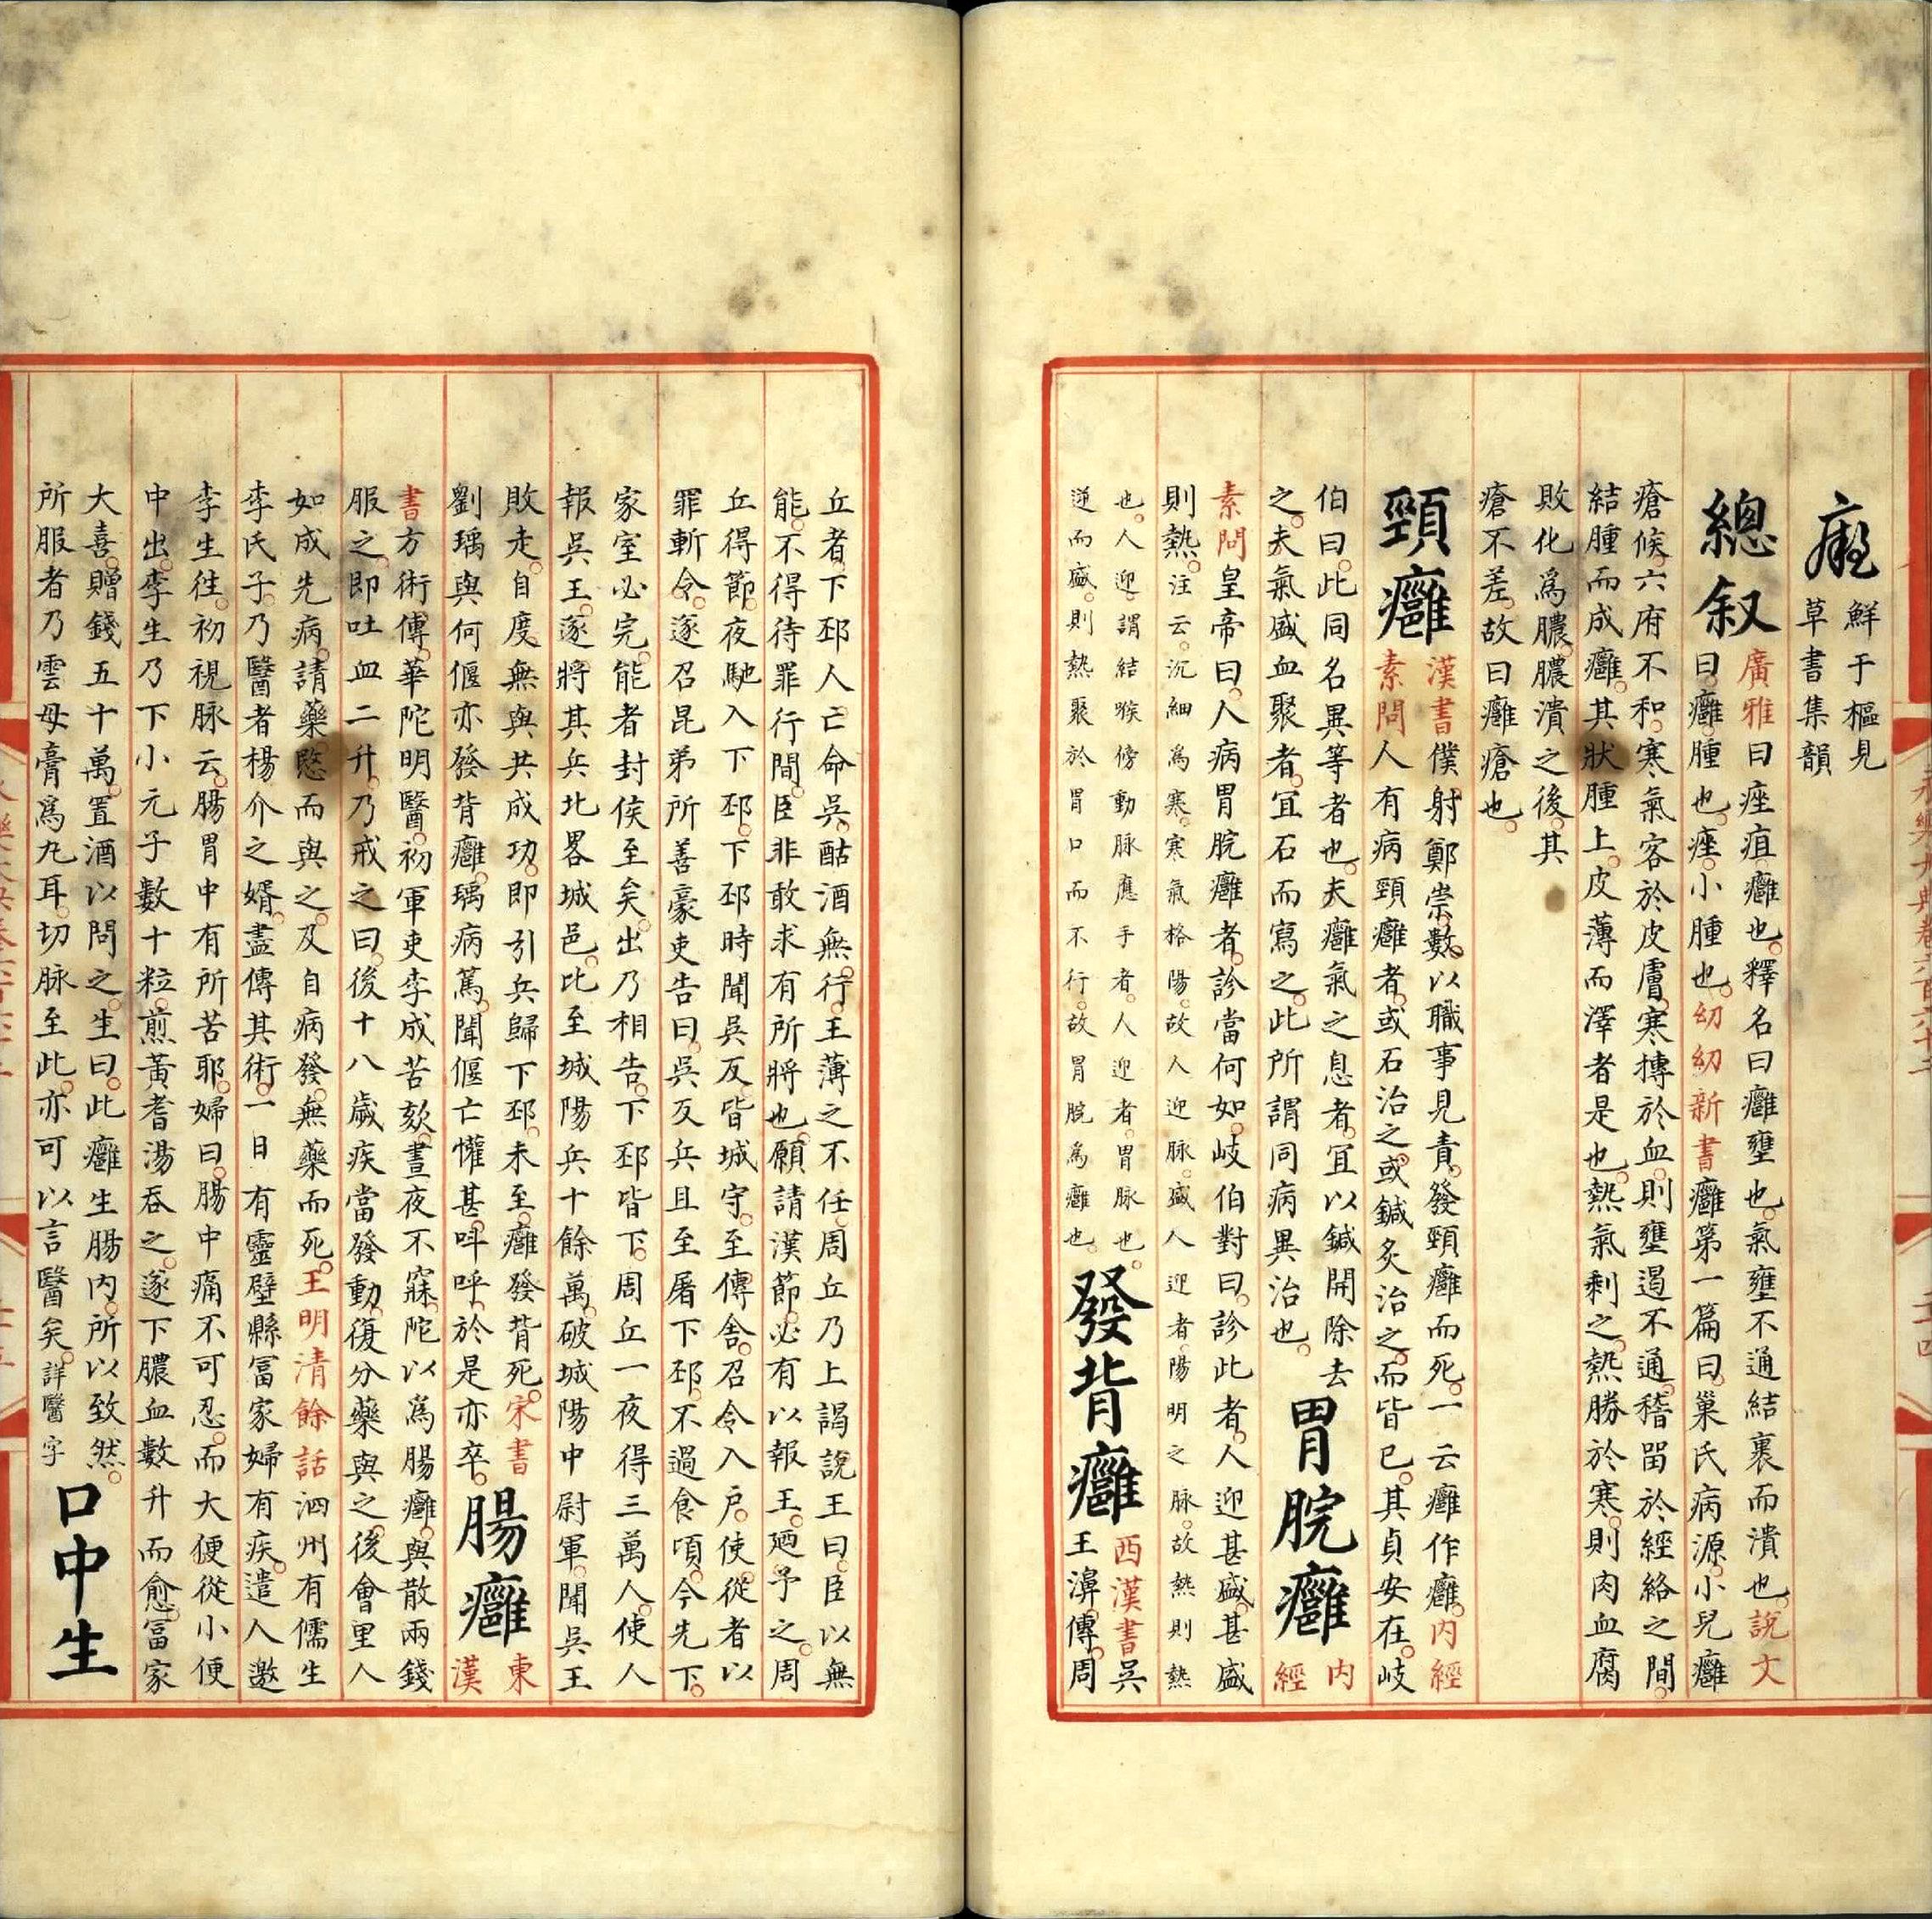 鮮于樞見
草書集韻
總叙
廣雅曰痤疽癰也。釋名曰癰壅也。氣壅不通結裹而潰也。說文
曰癰腫也。痤小腫也。幼幼新書癰第一篇曰。巢氏病源。小兒癰
瘡候。六府不和。寒氣客於皮膚。寒摶於血。則壅遏不通。稽畱於經絡之間。
結腫而成癰。其狀腫上皮薄而澤者是也。熱氣剩之。熱勝於寒。則肉血腐
敗化爲膿。膿潰之後。其
瘡不差。故曰癰瘡也。
頸癰
漢書僕射鄭崇。數以職事見責。發頸癰而死。一云癰作癰。内經
素問人有病頸癰者。或石治之。或鍼灸治之。而皆已。其貞安在。岐
伯曰。此同名異等者也。夫癰氣之息者。冝以鍼開除去
之。夫氣盛血聚者。冝石而寫之。此所謂同病異治也。
胃脘癰
内
經
素問皇帝曰。人病胃脘癰者。診當何如。岐伯對曰。診此者。人迎甚盛。甚盛
則熱。注云。沉細爲寒。寒氣格陽。故人迎脉盛。人迎者。陽明之脉。故熱則熱
也。人迎謂結喉傍動脉應手者。人迎者。胃脉也。
逆而盛。則熱聚於胃口而不行。故胃脘爲癰也。
發背癰
西漢書吳
王濞傳。周
丘者。下邳人。亡命吳。酤酒無行。王薄之不任。周丘乃上謁說王曰。臣以無
能。不得待罪行間。臣非敢求有所將也。願請漢節。必有以報王。廼予之。周
丘得節。夜馳入下邳。下邳時聞吳反皆城守。至傳舍。召令入户。使從者以
罪斬令。遂召昆弟所善豪吏告曰。吳反兵且至屠下邳。不過食頃。今先下。
家室必完。能者封侯至矣。出乃相告。下邳皆下。周丘一夜得三萬人。使人
報吳王。遂將其兵北畧城邑。比至城陽兵十餘萬。破城陽中尉軍。聞吳王
敗走。自度無與共成功。即引兵歸下邳。未至。癰發背死。宋書
劉瑀與何偃亦發背癰。瑀病篤。聞偃亡懽甚。呌呼。於是亦卒。
腸癰
東
漢
書方術傳。華陀明醫。初軍吏李成苦欬。晝夜不寐。陀以爲腸癰。與散兩錢
服之。即吐血二升。乃戒之曰。後十八歲疾當發動。復分藥與之。後會里人
如成先病。請藥愍而與之。及自病發。無藥而死。王明清餘話泗州有儒生
李氏子。乃醫者楊介之婿。盡傳其術。一日有靈壁縣富家婦有疾。遣人邀
李生徃。初視脉云。腸胃中有所苦耶。婦曰。腸中痛不可忍。而大便從小便
中出。李生乃下小元子數十粒。煎黃耆湯吞之。遂下膿血數升而愈。富家
大喜。贈錢五十萬。置酒以問之。生曰。此癰生腸内。所以致然。
所服者乃雲母膏爲丸耳。切脉至此。亦可以言醫矣。詳醫字
口中生